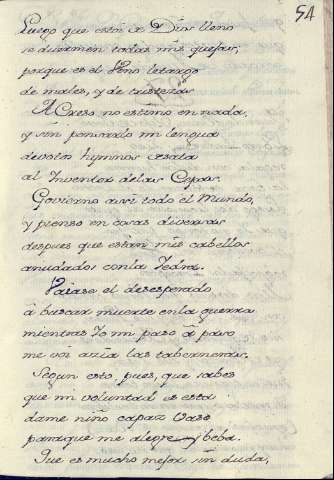 54
Luego que está a Dios lleno
se duermen todas mis quejas;
porque es el Leno letargo
de males, y de tristezas
A Creso no estimo en nada,
y sin pensarlo mi lengua
devotos hymnos exala
al Inventor de las Cepas.
Govierno assi todo el Mundo,
y pienso en cosas diversas
despues que estan mis cabellos
anudados con la Iedra.
Vaiase el desesperado
â buscar muerte en la guerra
mientras Yo mi paso â paso
me voi azia las tabernas.
Segun esto pues, que sabes
que mi voluntad es esta
dame niño capaz Vaso
para que me alegre y beba.
Que es mucho mejor sin duda,